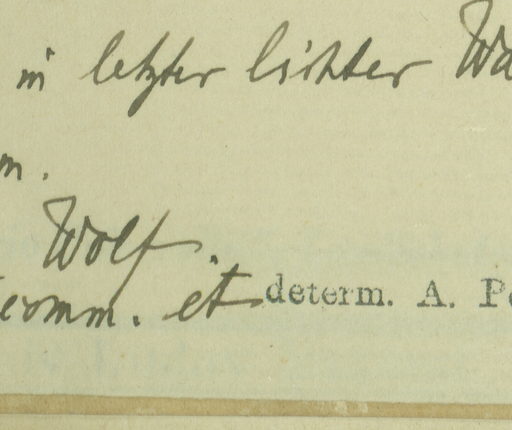 in letzter lichter Wa
m.
Wolf.
comm. et determ. A. Pe